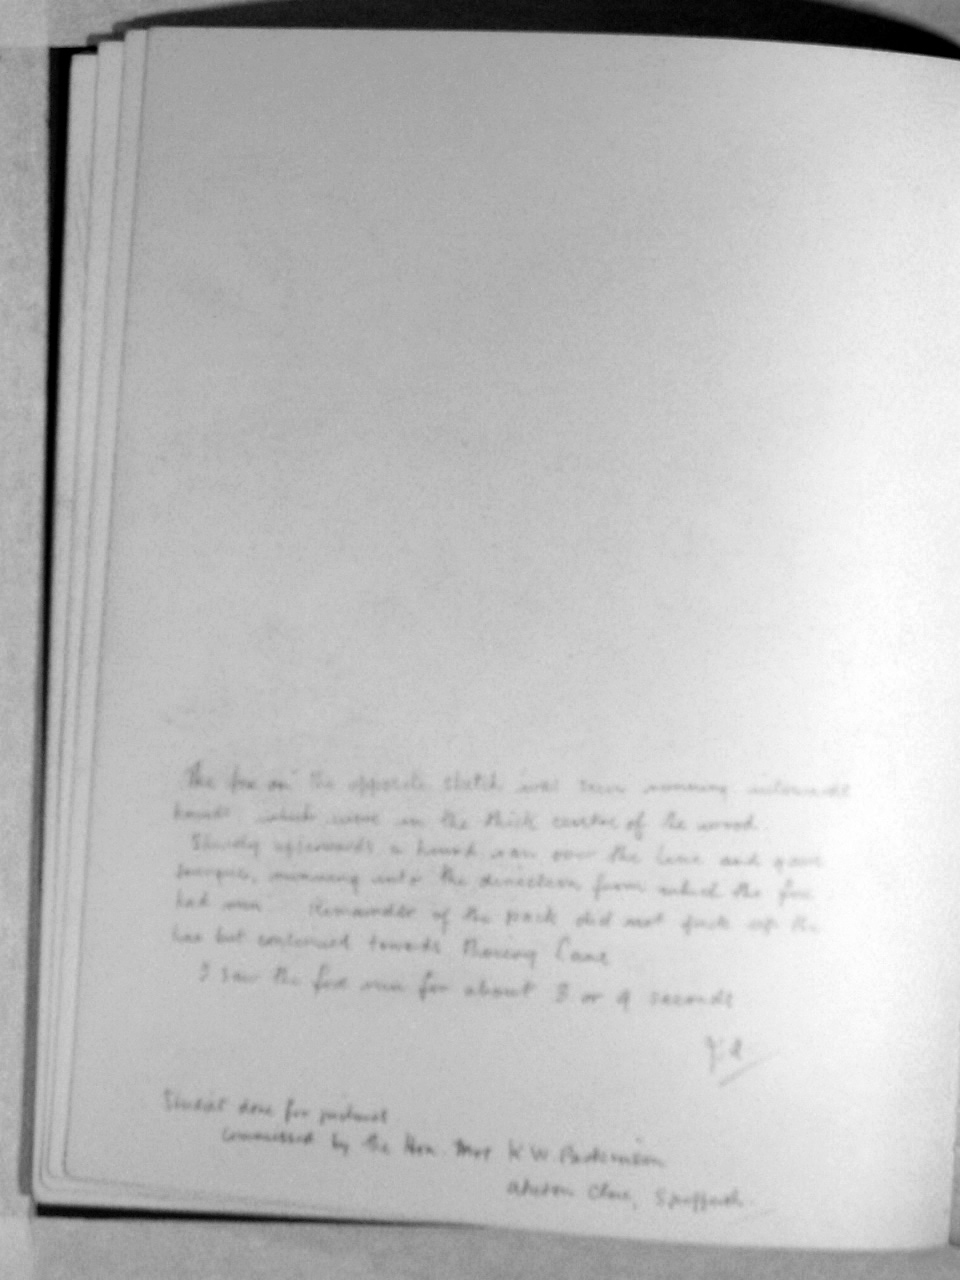 The fox on the opposite sketch was seen running
hounds which were in the thick centre of the wood.
Shortly afterwards a hound ran over the line and gave
tongue, running into the direction from which the fox
had run. Remainder of the pack did not pick up the
line but continued towards Lane
I saw the fox run for about 3 or 4 seconds
Studies done for pictures
by the Hon. Mrs K W Parkinson
Close, Spofforth.